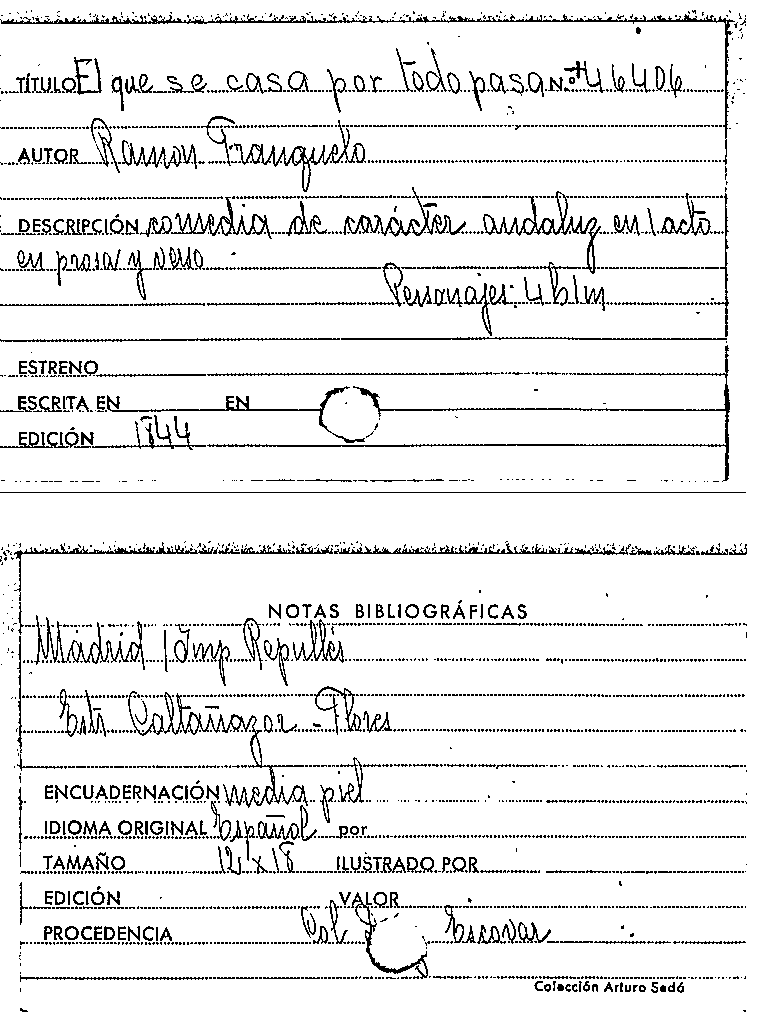 TÍTULO El que se casa por todo pasa N.º 46406
AUTOR Ramon Franquelo
DESCRIPCIÓN comedia de carácter andaluz en 1 acto
en prosa y verso
Personajes: 4 h 1 m
ESTRENO
ESCRITA EN EN
EDICIÓN 1844
NOTAS BIBLIOGRÁFICAS
Madrid / Imp Repullés
Estr. Caltañazor - Flores
ENCUADERNACIÓN media piel
IDIOMA ORIGINAL Español por
TAMAÑO 12 x 18 ILUSTRADO POR
EDICIÓN VALOR
PROCEDENCIA Col Escovar
Colección Arturo Sedó